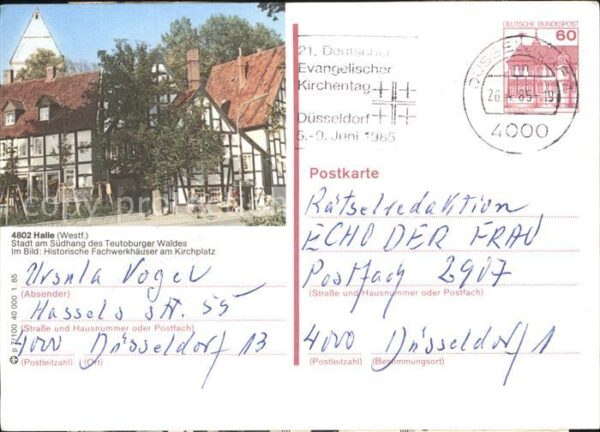 21. Deutscher
Evangelischer
Kirchentag
Düsseldorf
5.-9. Juni 1985
DEUTSCHE BUNDESPOST
60
4000
4802 Halle (Westf.)
Stadt am Südhang des Teutoburger Waldes
Im Bild: Historische Fachwerkhäuser am Kirchplatz
Ursula Vogel
(Absender)
Hassels str. 55
(Straße und Hausnummer oder Postfach)
4000 Düsseldorf 13
(Postleitzahl) (Ort)
Postkarte
Rätselredaktion
ECHO DER FRAU
Postfach 2907
(Straße und Hausnummer oder Postfach)
4000 Düsseldorf 1
(Postleitzahl) (Bestimmungsort)